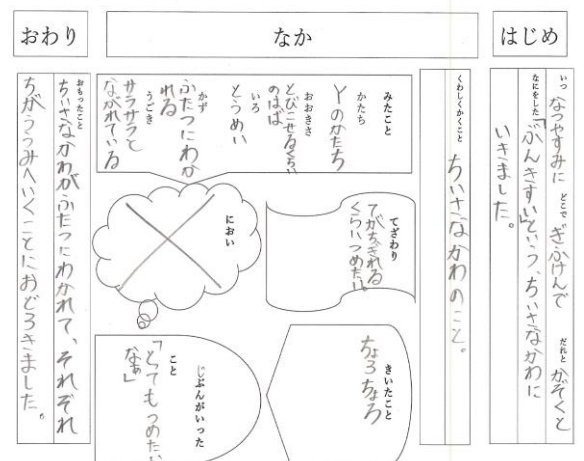 はじめ
いつ なつやすみに どこで ぎふけんで だれと かぞくと
なにをした 「ぶんきすい」という、ちいさなかわに
いきました。
なか
くわしくかくこと ちいさなかわのこと。
みたこと
かたち
Yのかたち
おおきさ
とびこせるくらい
のはば
いろ
とうめい
かず
ふたつにわか
れる
うごき
サラサラと
ながれている
てざわり
てがちぎれる
くらいつめたい。
におい
きいたこと
ちょろちょろ
じぶんがいった
こと
「とてもつめたい
なぁ」
おわり
おもったこと
ちいさなかわがふたつにわかれて、それぞれ
ちがううみへいくことにおどろきました。